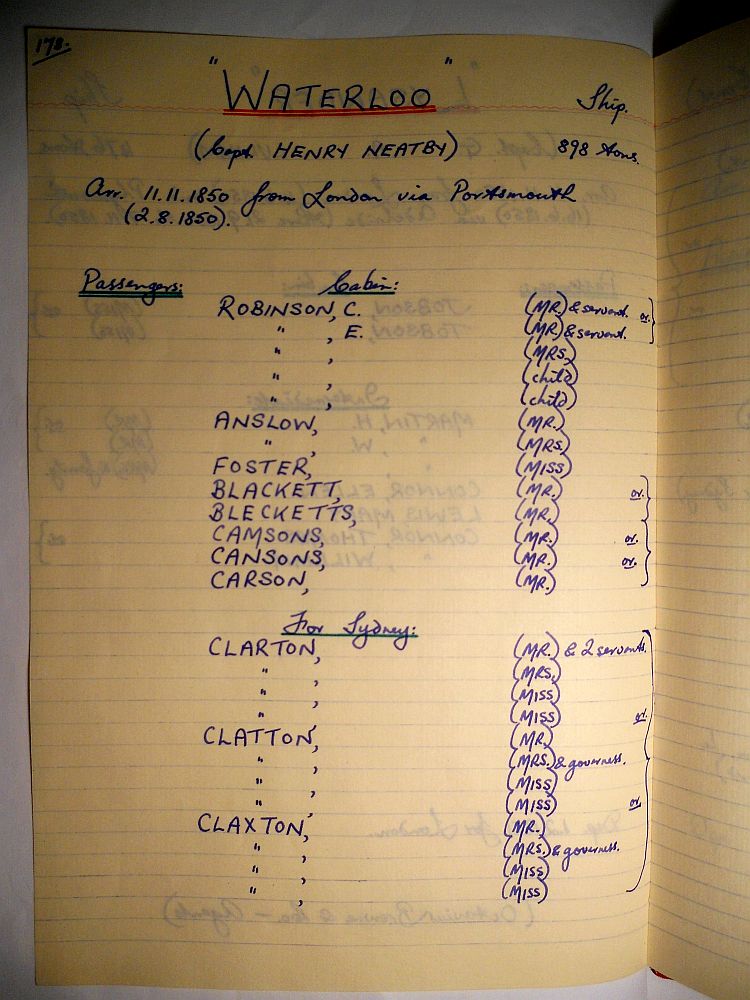 178.
"WATERLOO" Ship.
(Capt. HENRY NEATBY) 898 tons.
Arr. 11.11.1850 from London via Portsmouth
(2.8.1850).
Passengers: Cabin:
ROBINSON, C. (MR.) & servant. or.
" , E. (MR.) & servant.
" , (MRS.)
" , (child)
" , (child)
ANSLOW, (MR.)
" , (MRS.)
FOSTER, (MISS)
BLACKETT, (MR.) or.
BLECKETTS, (MR.)
CAMSONS, (MR.) or.
CANSONS, (MR.) or.
CARSON, (MR.)
For Sydney:
CLARTON, (MR.) & 2 servants.
" , (MRS.)
" , (MISS)
" , (MISS) or.
CLATTON, (MR.)
" , (MRS.) & governess.
" , (MISS)
" , (MISS) or.
CLAXTON, (MR.)
" , (MRS.) & governess.
" , (MISS)
" , (MISS)